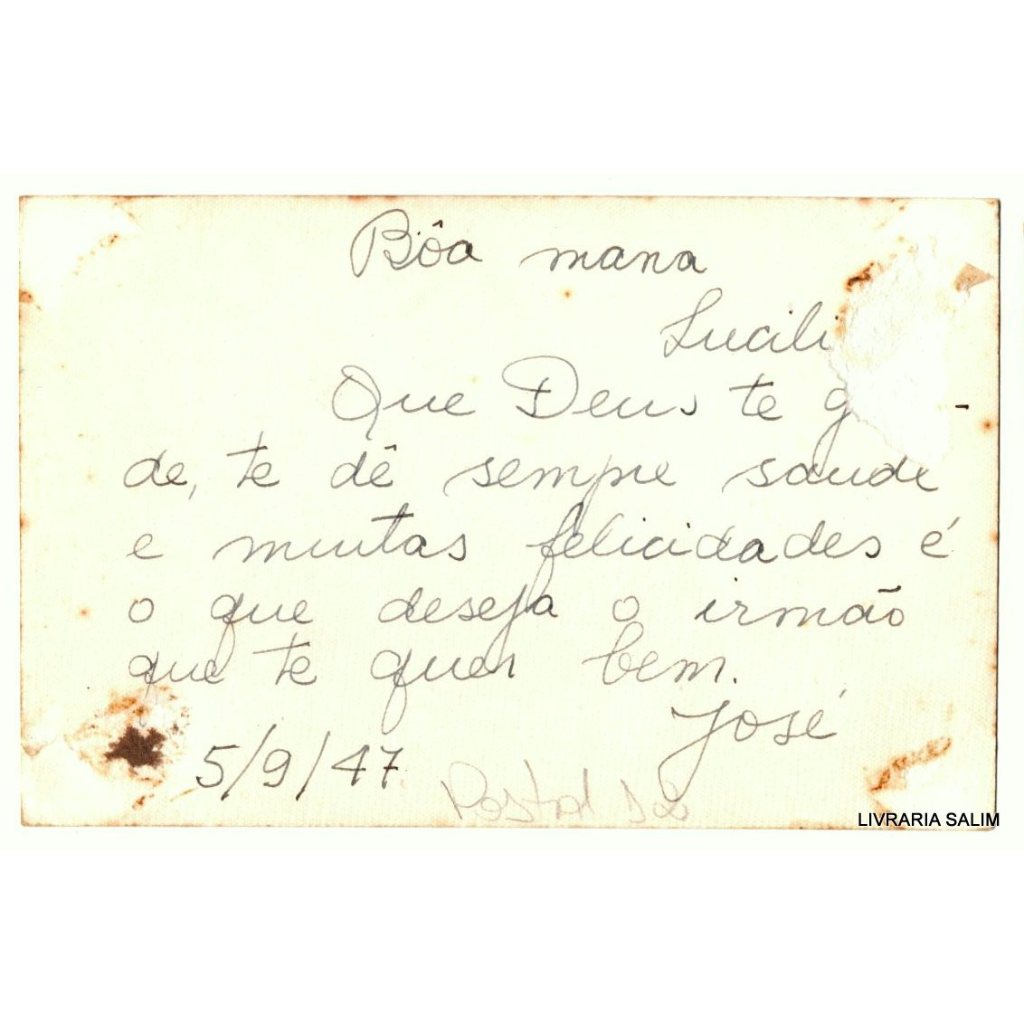 Bôa mana
Lucili
Que Deus te g -
de, te dê sempre saude
e muitas felicidades é
o que deseja o irmão
que te quer bem.
José
5/9/47
Postal
LIVRARIA SALIM